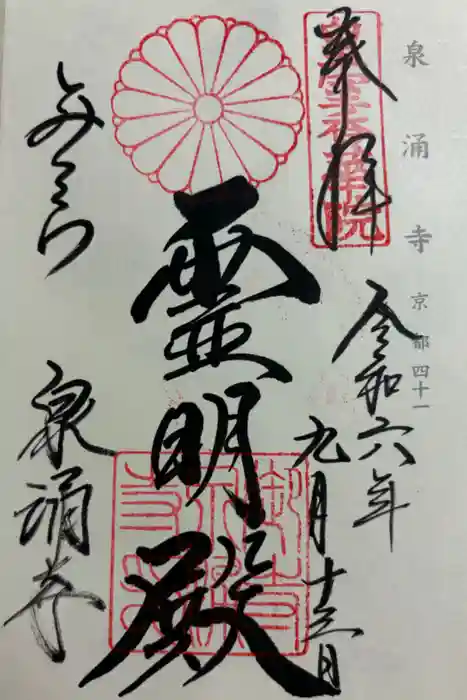 泉涌寺 京都四十一
奉拝
皇室香華院
令和六年
九月十三日
霊明殿
とみくら
泉涌寺